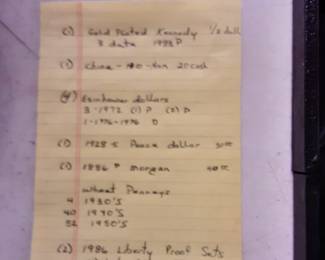 (1) Gold Plated Kennedy 1/2 doll
3 date 1988 P
(1) China - - 20 cash
(4) Eisenhower dollars
3-1972 (1) P (2) D
1-1776-1976 D
(1) 1928-S Peace dollar
(1) 1886 P morgan
wheat Penneys
4 1930'S
40 1940'S
52 1950'S
(2) 1986 Liberty Proof Sets